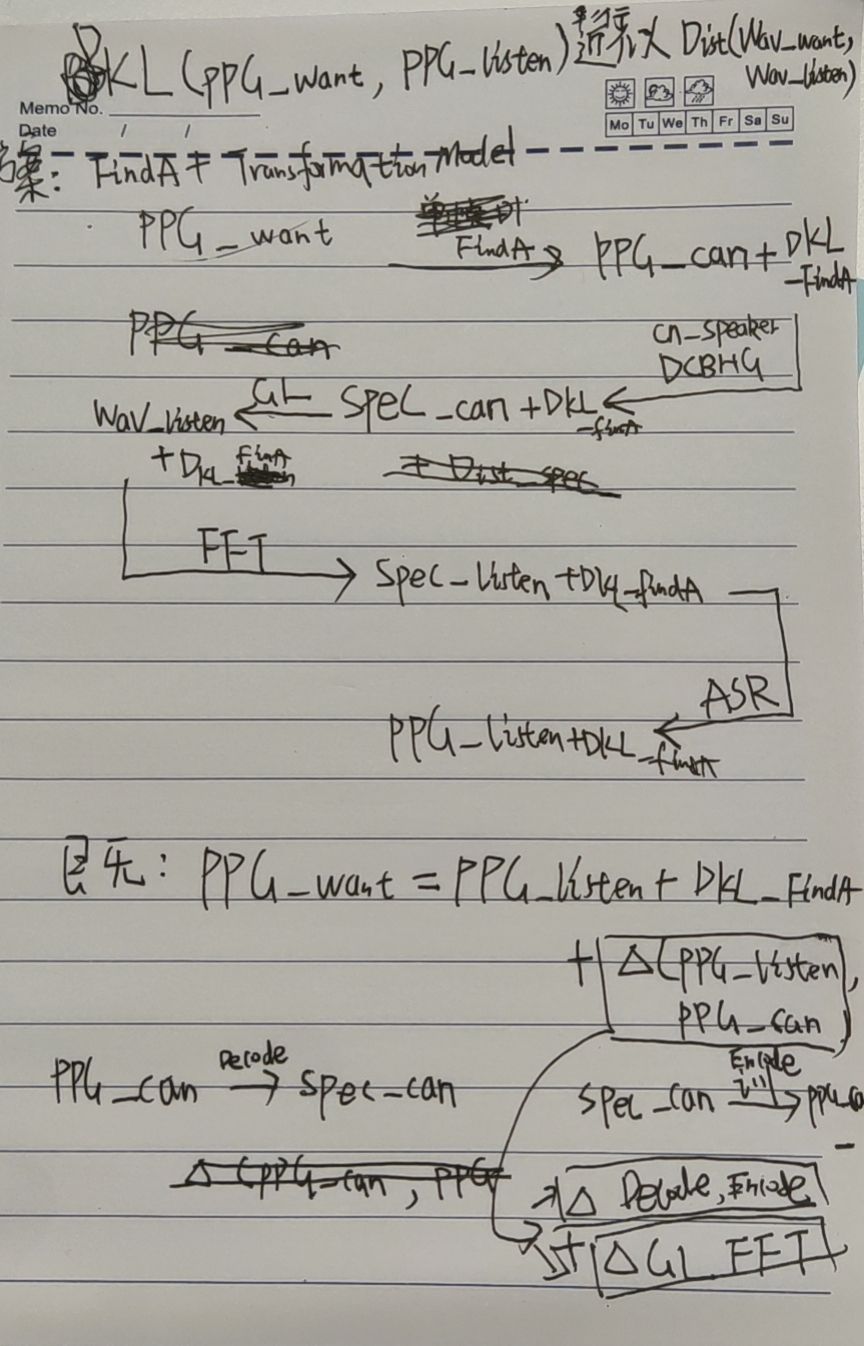 DKL(PPG_want, PPG_listen) 近来以 Dist(Wav_want,
Wav_listen)
Memo No.
Date / /
Mo Tu We Th Fr Sa Su
案: FindA Transformation Model
PPG_want FindA PPG_can + DKL
_FindA
PPG_can
cn_speaker
DCBHG
Wav_listen GL Spec_can + DKL
_FindA
+ DKL_FinA
+ Dist_spec
FFT
Spec_listen + DKL_findA
ASR
PPG_listen + DKL
_findA
PPG_want = PPG_listen + DKL_FindA
+ Δ(PPG_listen,
PPG_can)
PPG_can Decode Spec_can
Spec_can Encode
Δ(PPG_can, PPG
Δ Decode, Encode
+ Δ GL_FFT